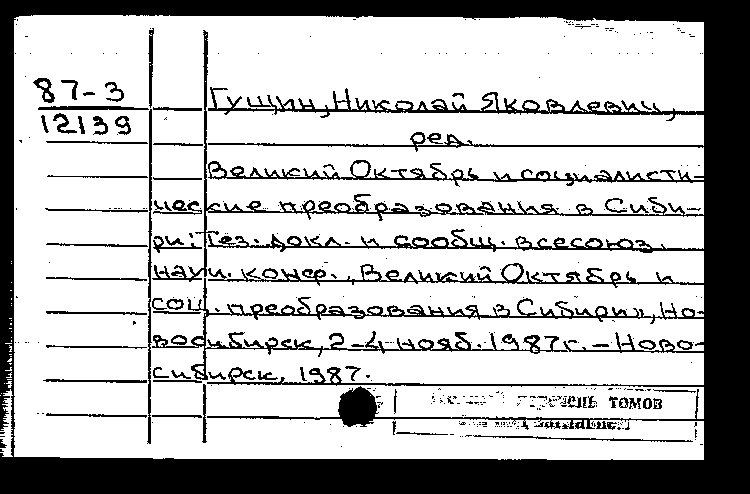 87-3
12139
Гущин, Николай Яковлевич,
ред.
Великий Октябрь и социалисти-
ческие преобразования в Сиби-
ри: Тез. докл. и сообщ. всесоюз.
науч. конф. „Великий Октябрь и
соц. преобразования в Сибири», Но-
восибирск, 2-4 нояб. 1987г. - Ново-
сибирск, 1987.
перечень томов